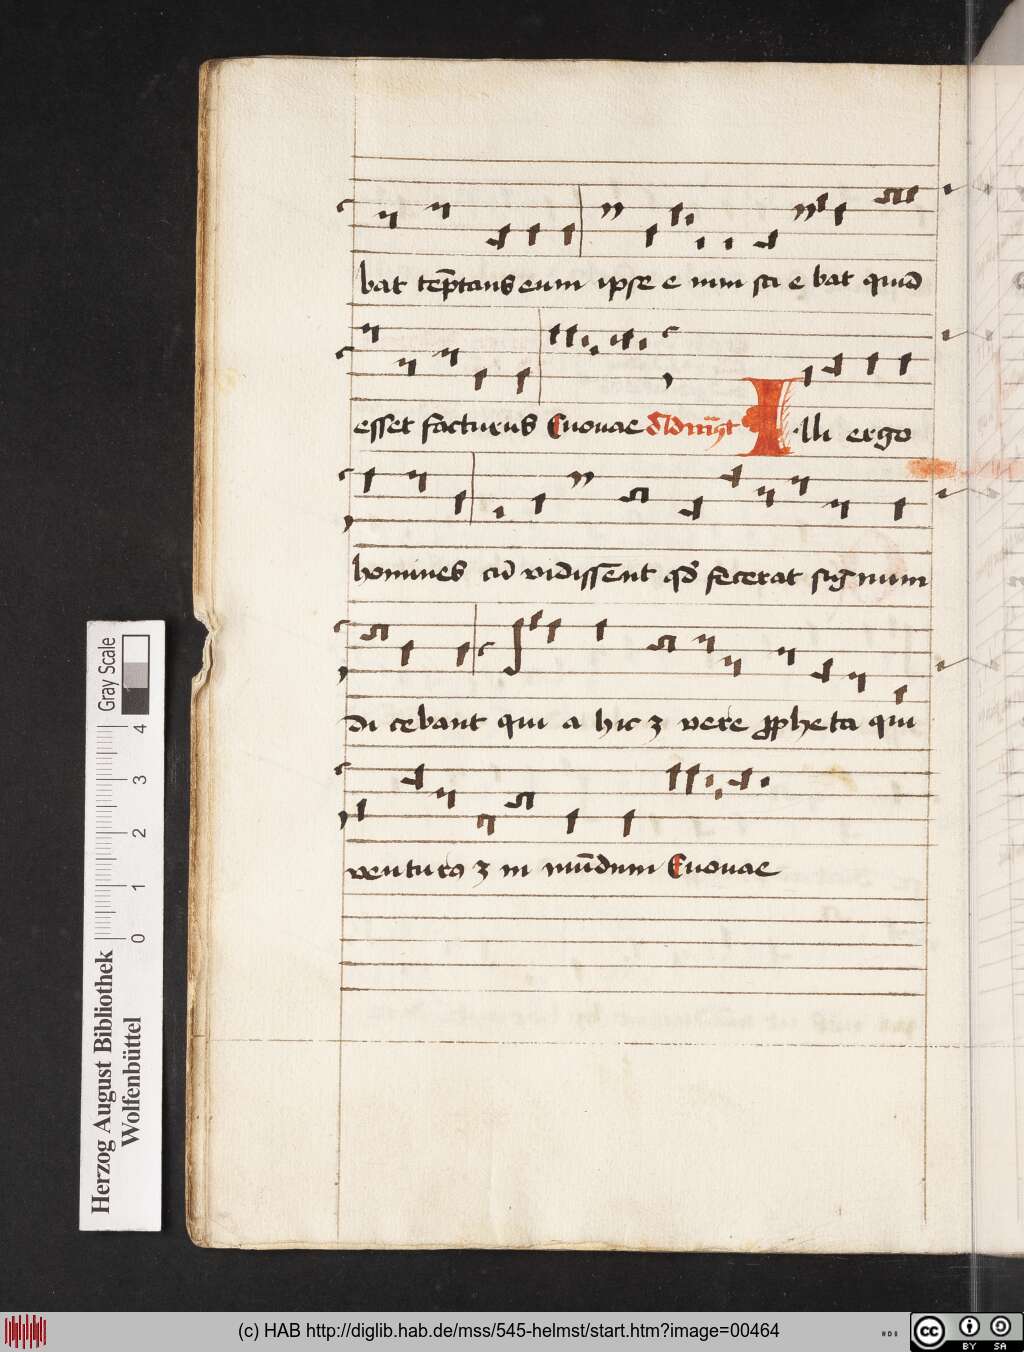 bat te͞ptans eum ipse e nim sci e bat quid
esset facturus Euouae Illi ergo
homines cū vidissent qd̄ fecerat signum
di cebant qui a hic ꝫ vere ꝓpheta qui
venturꝰ ꝫ in mūdum Euouae
Gray Scale
4
3
2
1
0
Herzog August Bibliothek
Wolfenbüttel
(c) HAB http://diglib.hab.de/mss/545-helmst/start.htm?image=00464
cc BY SA